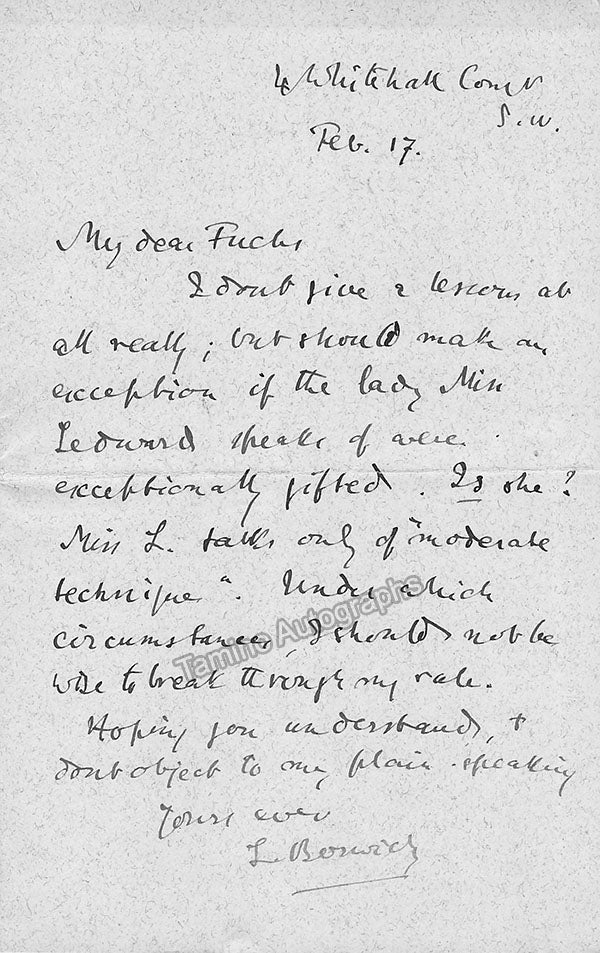 4 Whitehall Court
S.W.
Feb. 17.
My dear Fuchs
I dont give lessons at
all really; but should make an
exception if the lady Miss
Ledward speaks of were
exceptionally gifted. Is she?
Miss L. talks only of "moderate
technique". Under which
circumstances, I should not be
wise to break through my rule.
Hoping you understand, +
dont object to my plain-speaking
Yours ever
L. Borwick
Tamino Autographs